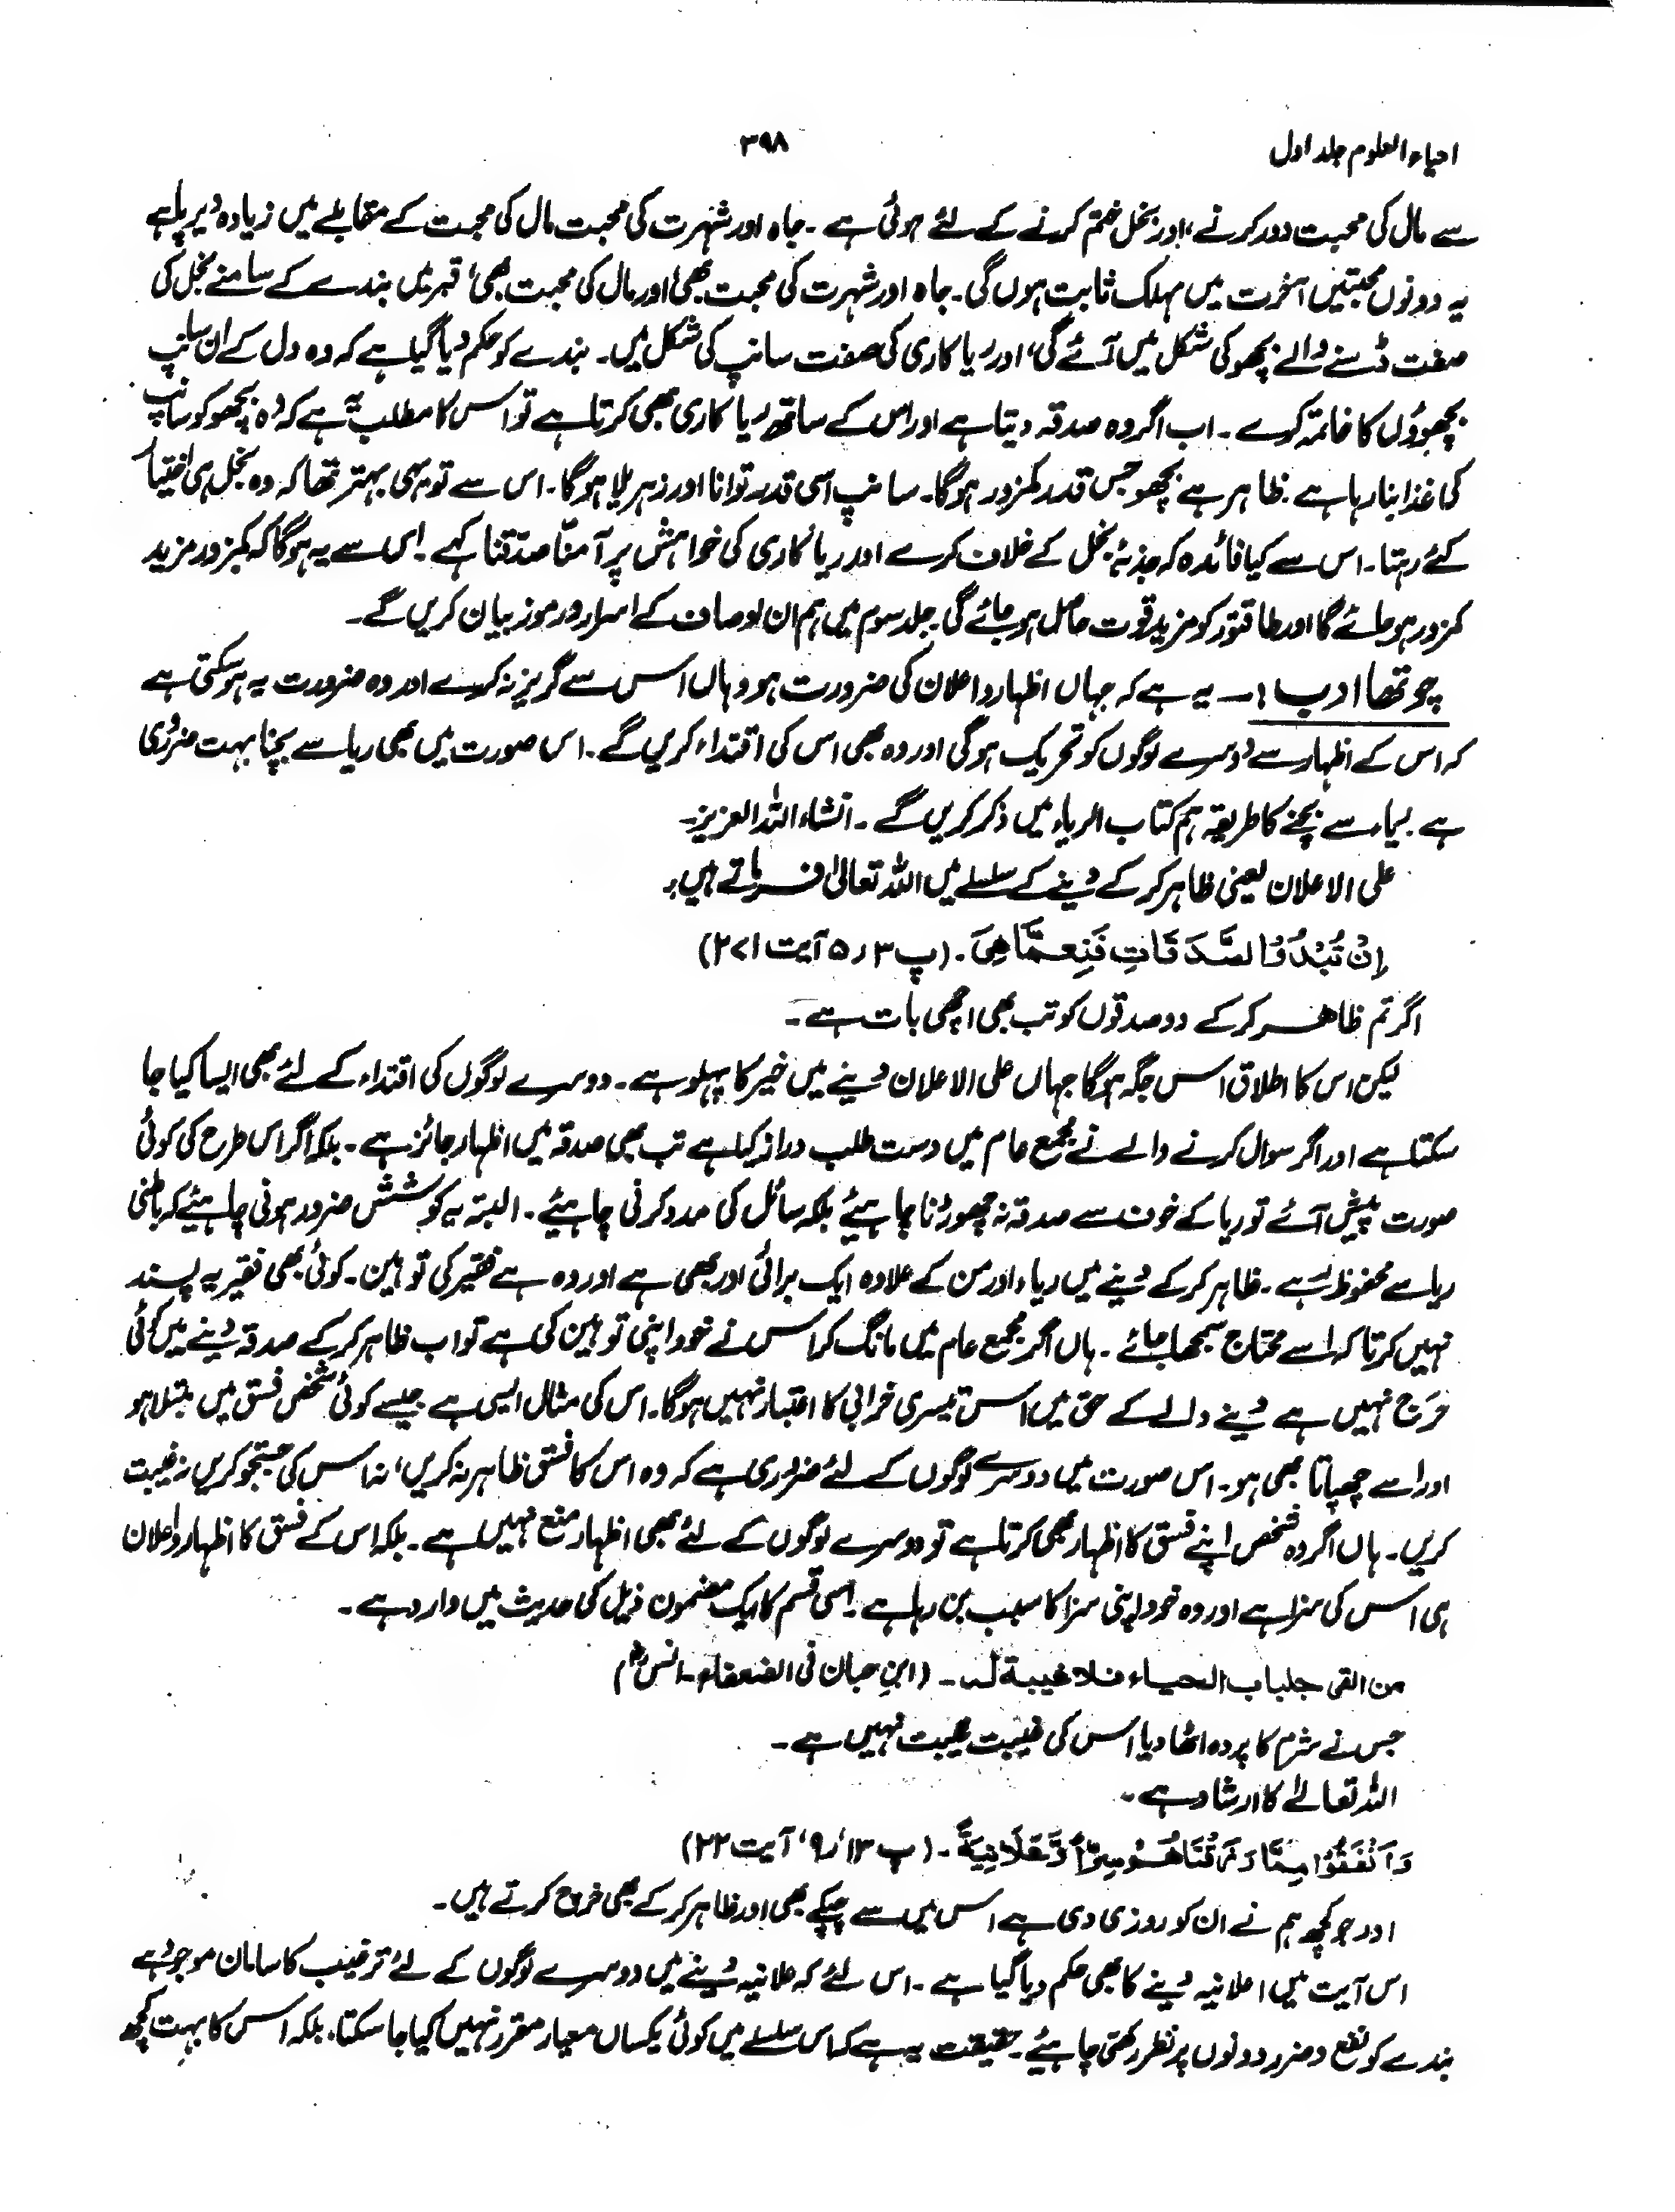 احیاء العلوم جلد اول
۳۹۸
سے مال کی محبت دور کرنے، اور بخل ختم کرنے کے لئے ہوئی ہے ۔ جاہ اور شہرت کی محبت مال کی محبت کے مقابلے میں زیادہ دیرپا ہے
یہ دونوں محبتیں آخرت میں مہلک ثابت ہوں گی ۔ جاہ اور شہرت کی محبت بھی، اور مال کی محبت بھی، قبر میں بندے کے سامنے بخل کی
صفت ڈسنے والے بچھو کی شکل میں آئے گی، اور ریا کاری کی صفت سانپ کی شکل میں ۔ بندے کو حکم دیا گیا ہے کہ وہ دل کے ان سانپ
بچھوؤں کا خاتمہ کرے ۔ اب اگر وہ صدقہ دیتا ہے اور اس کے ساتھ ریا کاری بھی کرتا ہے تو اس کا مطلب یہ ہے کہ وہ بچھو کو سانپ
کی غذا بنا رہا ہے ۔ ظاہر ہے بچھو جس قدر کمزور ہوگا ۔ سانپ اسی قدر توانا اور زہریلا ہوگا ۔ اس سے تو یہی بہتر تھا کہ وہ بخل ہی اختیار
کئے رہتا ۔ اس سے کیا فائدہ کہ جذبۂ بخل کے خلاف کرے اور ریا کاری کی خواہش پر آمنّا صدّقنا کہے ۔ اس سے یہ ہوگا کہ کمزور مزید
کمزور ہو جائے گا اور طاقتور کو مزید قوت حاصل ہو جائے گی ۔ جلد سوم میں ہم ان اوصاف کے اسرار و رموز بیان کریں گے ۔
چوتھا ادب :۔ یہ ہے کہ جہاں اظہار و اعلان کی ضرورت ہو وہاں اس سے گریز نہ کرے اور وہ ضرورت یہ ہو سکتی ہے
کہ اس کے اظہار سے دوسرے لوگوں کو تحریک ہوگی اور وہ بھی اس کی اقتداء کریں گے ۔ اس صورت میں بھی ریا سے بچنا بہت ضروری
ہے ۔ ریاء سے بچنے کا طریقہ ہم کتاب الریاء میں ذکر کریں گے ۔ انشاء اللہ العزیز ۔
علی الاعلان یعنی ظاہر کر کے دینے کے سلسلے میں اللہ تعالیٰ فرماتے ہیں :۔
اِنْ تُبْدُوْا الصَّدَقَاتِ فَنِعِمَّا هِيَ ۔ (پ ۳ ر ۵ آیت ۲۷۱)
اگر تم ظاہر کر کے دو صدقوں کو تب بھی اچھی بات ہے ۔
لیکن اس کا اطلاق اس جگہ ہوگا جہاں علی الاعلان دینے میں خیر کا پہلو ہے ۔ دوسرے لوگوں کی اقتداء کے لئے بھی ایسا کیا جا
سکتا ہے اور اگر سوال کرنے والے نے مجمع عام میں دست طلب دراز کیا ہے تب بھی صدقہ میں اظہار جائز ہے ۔ بلکہ اگر اس طرح کی کوئی
صورت پیش آئے تو ریا کے خوف سے صدقہ نہ چھوڑنا چاہیئے بلکہ سائل کی مدد کرنی چاہیئے ۔ البتہ یہ کوشش ضرور ہونی چاہیئے کہ باطنی
ریا سے محفوظ رہے ۔ ظاہر کر کے دینے میں ریاء اور من کے علاوہ ایک برائی اور بھی ہے اور وہ ہے فقیر کی توہین ۔ کوئی بھی فقیر یہ پسند
نہیں کرتا کہ اسے محتاج سمجھا جائے ۔ ہاں اگر مجمع عام میں مانگ کر اس نے خود اپنی توہین کی ہے تو اب ظاہر کر کے صدقہ دینے میں کوئی
حرج نہیں ہے دینے والے کے حق میں اس تیسری خرابی کا اعتبار نہیں ہوگا ۔ اس کی مثال ایسی ہے جیسے کوئی شخص فسق میں مبتلا ہو
اور اسے چھپاتا بھی ہو ۔ اس صورت میں دوسرے لوگوں کے لئے ضروری ہے کہ وہ اس کا فسق ظاہر نہ کریں، نہ اس کی جستجو کریں نہ غیبت
کریں ۔ ہاں اگر وہ شخص اپنے فسق کا اظہار بھی کرتا ہے تو دوسرے لوگوں کے لئے بھی اظہار منع نہیں ہے ۔ بلکہ اس کے فسق کا اظہار و اعلان
ہی اس کی سزا ہے اور وہ خود اپنی سزا کا سبب بن رہا ہے ۔ اسی قسم کا ایک مضمون ذیل کی حدیث میں وارد ہے ۔
من القی جلباب الحیاء فلا غیبة له ۔ (ابن حبان فی الضعفاء ۔ انسؓ)
جس نے شرم کا پردہ اٹھا دیا اس کی غیبت غیبت نہیں ہے ۔
اللہ تعالےٰ کا ارشاد ہے ۔
وَاَنْفَقُوْا مِمَّا رَزَقْنَاهُمْ سِرًّا وَّعَلَانِيَةً ۔ (پ ۱۳، ر ۹، آیت ۲۲)
اور جو کچھ ہم نے ان کو روزی دی ہے اس میں سے چپکے بھی اور ظاہر کر کے بھی خرچ کرتے ہیں ۔
اس آیت میں اعلانیہ دینے کا بھی حکم دیا گیا ہے ۔ اس لئے کہ علانیہ دینے میں دوسرے لوگوں کے لئے ترغیب کا سامان موجود ہے
بندے کو نفع و ضرر دونوں پر نظر رکھنی چاہیئے ۔ حقیقت یہ ہے کہ اس سلسلے میں کوئی یکساں معیار مقرر نہیں کیا جا سکتا، بلکہ اس کا بہت کچھ